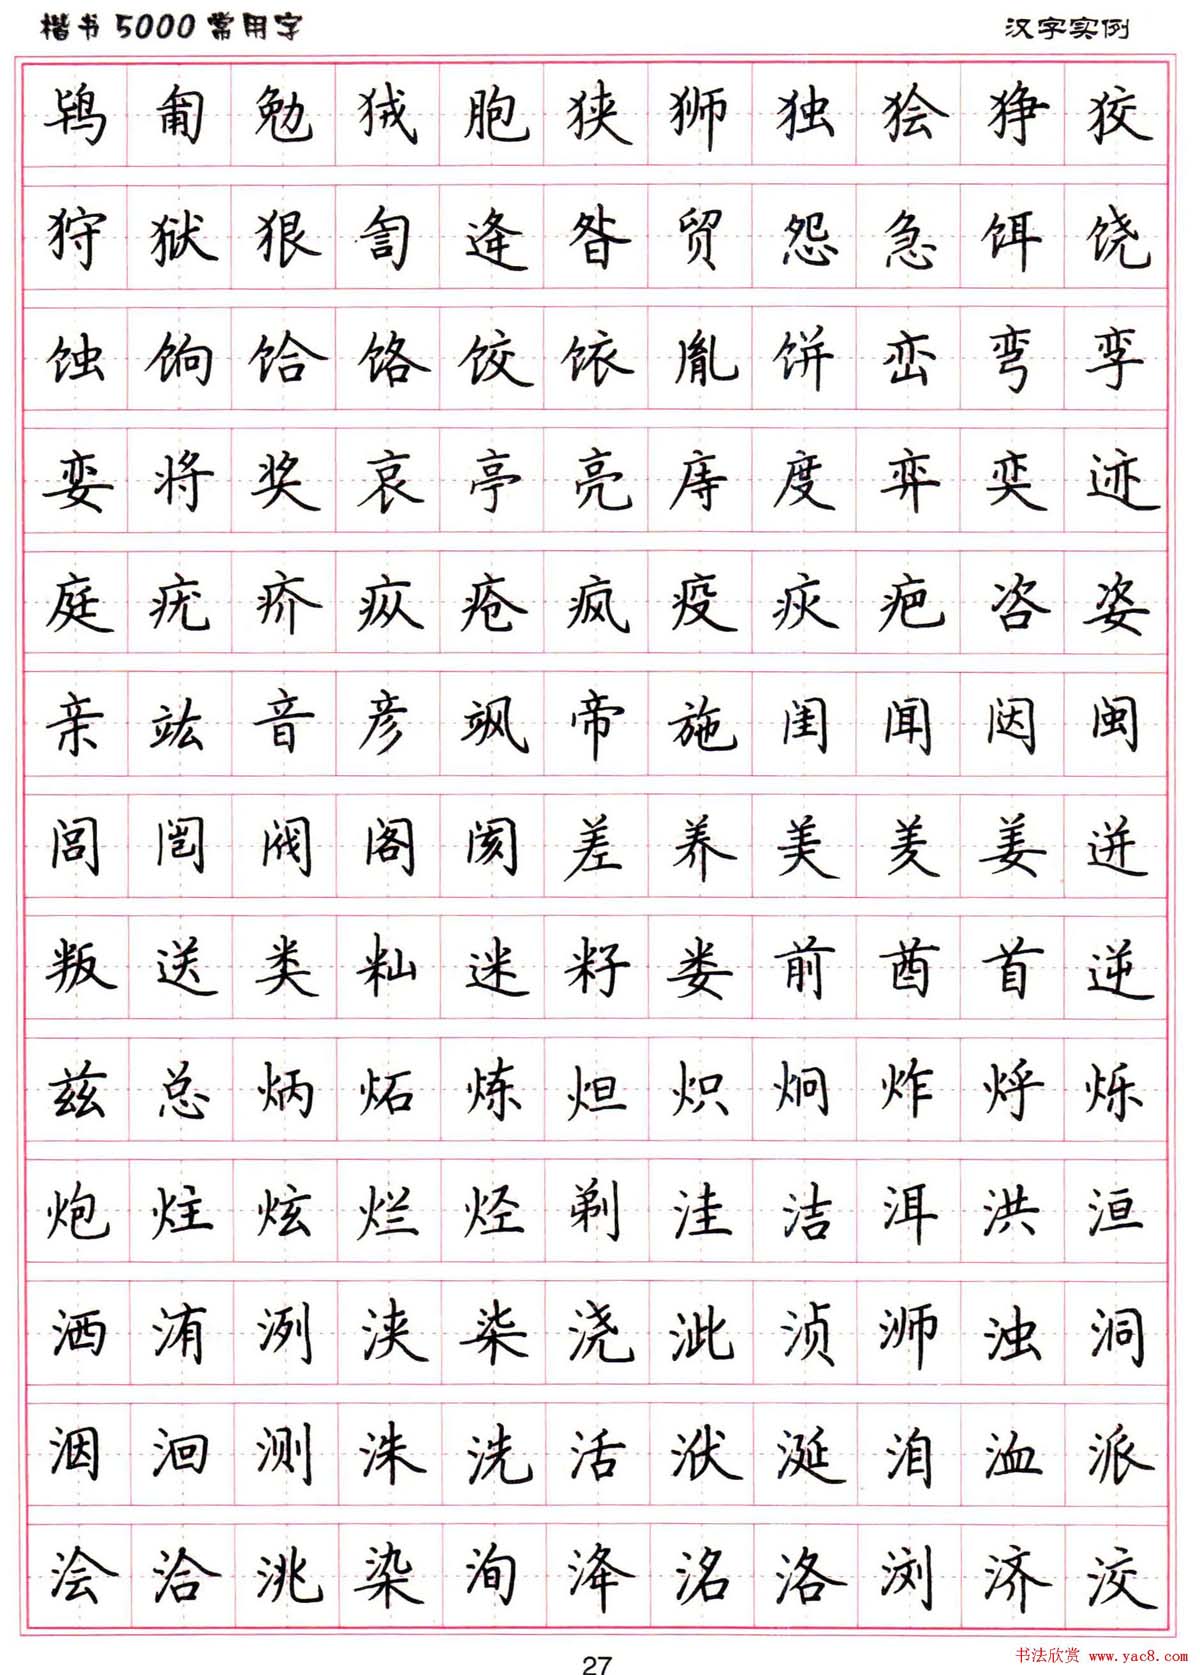 楷书5000常用字 汉字实例
鸨匍勉狨胞狭狮独狯狰狡
狩狱狠訇逄昝贸怨急饵饶
蚀饷饸饹饺饻胤饼峦弯孪
娈将奖哀亭亮庤度弈奕迹
庭疣疥疭疮疯疫疢疤咨姿
亲竑音彦飒帝施闺闻闼闽
闾闿阀阁阂差养美羑姜迸
叛送类籼迷籽娄前酋首逆
兹总炳炻炼炟炽炯炸烀烁
炮炷炫烂烃剃洼洁洱洪洹
洒洧洌浃柒浇泚浈浉浊洞
洇洄测洙洗活洑涎洎洫派
浍洽洮染洵洚洺洛浏济洨
27
书法欣赏 www.yac8.com